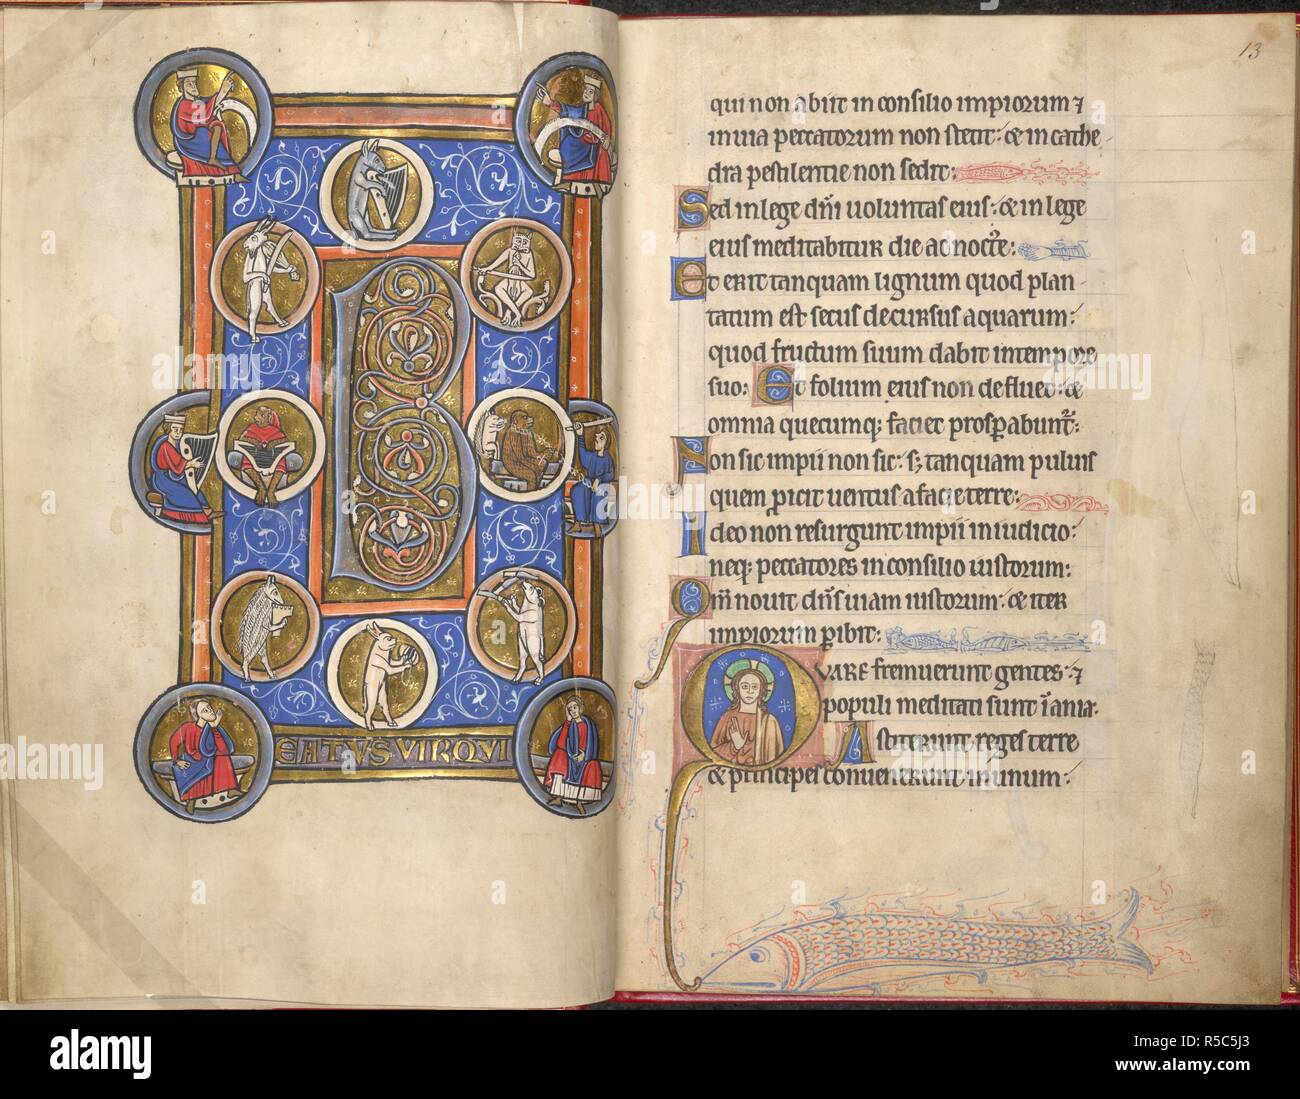 BEATVS VIR QVI
13
qui non abiit in consilio impiorum ⁊
in uia peccatorum non stetit: ⁊ in cathe-
dra pestilentie non sedit:
Sed in lege dñi uoluntas eius: ⁊ in lege
eius meditabitur die ac nocte:
Et erit tanquam lignum quod plan-
tatum est secus decursus aquarum:
quod fructum suum dabit in tempore
suo: Et folium eius non defluet: ⁊
omnia quecumq; faciet prosperabunt᷑:
Non sic impii non sic: s; tanquam puluis
quem ꝓicit uentus a facie terre:
Ideo non resurgunt impii in iudicio:
neq; peccatores in consilio iustorum:
Qm̄ nouit dñs uiam iustorum: ⁊ iter
impiorum ꝑibit:
QVARE fremuerunt gentes: ⁊
populi meditati sunt īania:
Astiterunt reges terre
⁊ principes conuenerunt in unum:
alamy
Image ID: R5C5J3
www.alamy.com